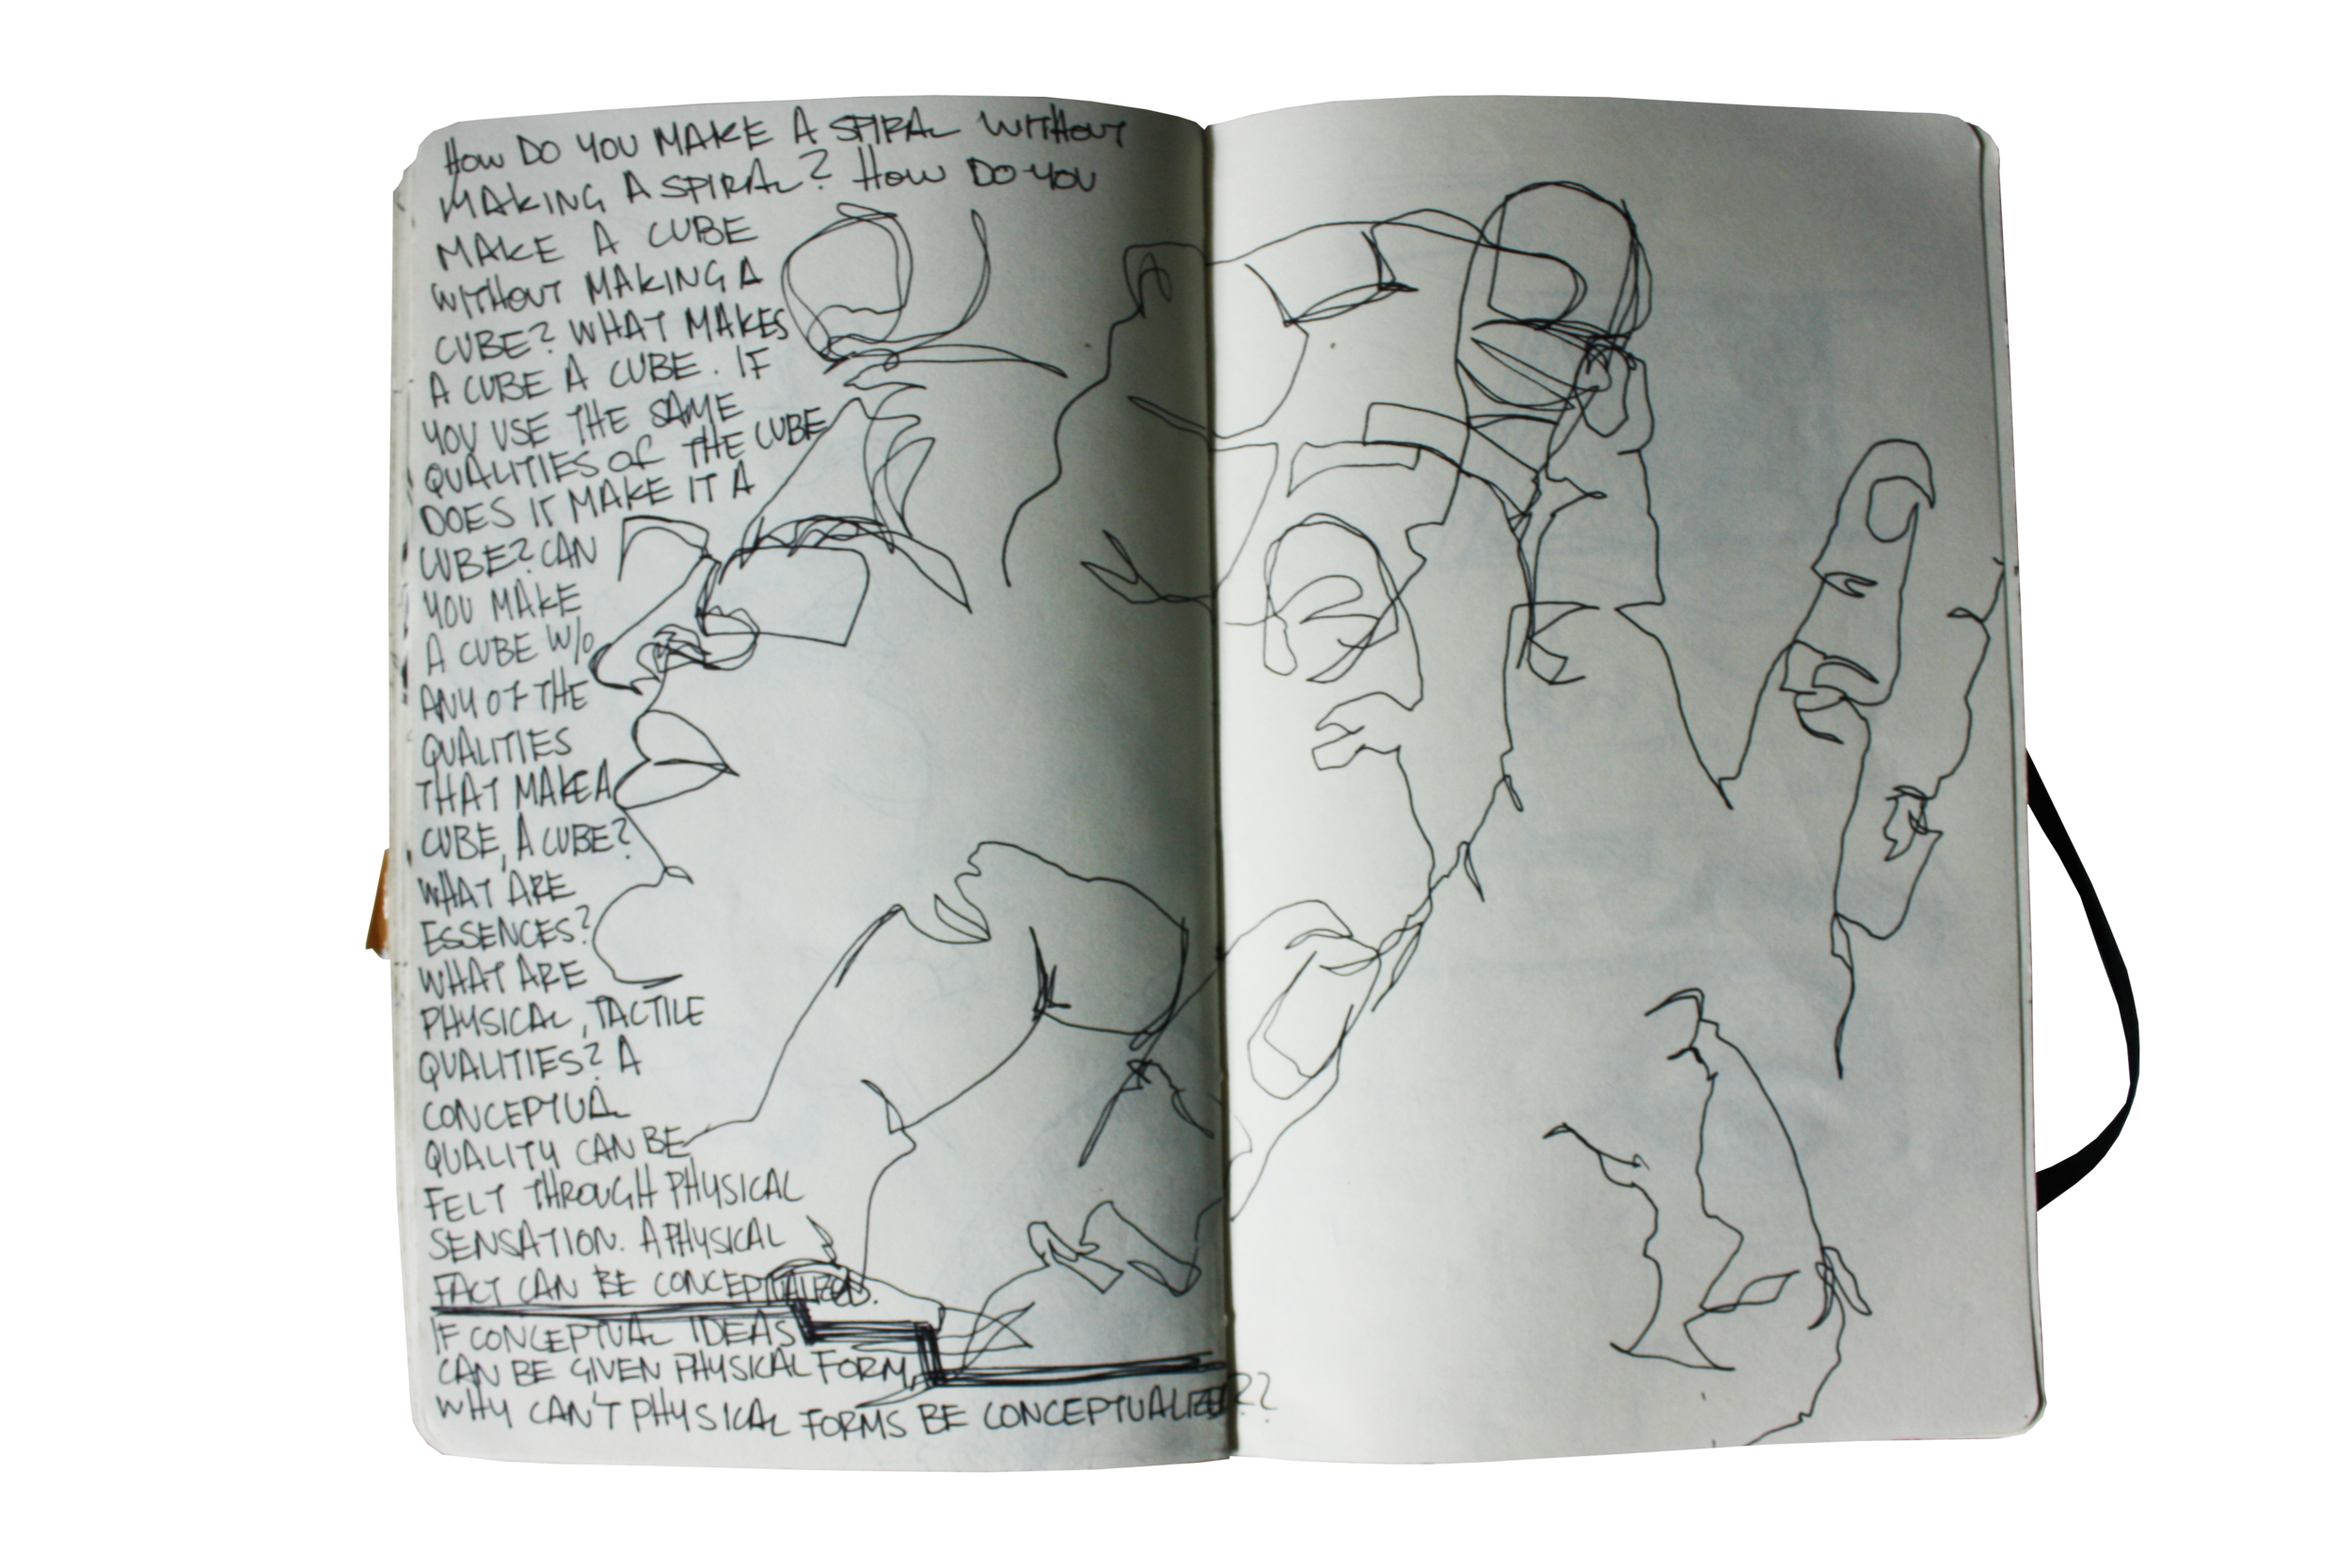 HOW DO YOU MAKE A SPIRAL WITHOUT
MAKING A SPIRAL? HOW DO YOU
MAKE A CUBE
WITHOUT MAKING A
CUBE? WHAT MAKES
A CUBE A CUBE. IF
YOU USE THE SAME
QUALITIES OF THE CUBE
DOES IT MAKE IT A
CUBE? CAN
YOU MAKE
A CUBE W/O
ANY OF THE
QUALITIES
THAT MAKE A
CUBE, A CUBE?
WHAT ARE
ESSENCES?
WHAT ARE
PHYSICAL, TACTILE
QUALITIES? A
CONCEPTUAL
QUALITY CAN BE
FELT THROUGH PHYSICAL
SENSATION. A PHYSICAL
FACT CAN BE CONCEPTUALIZED.
IF CONCEPTUAL IDEAS
CAN BE GIVEN PHYSICAL FORM,
WHY CAN'T PHYSICAL FORMS BE